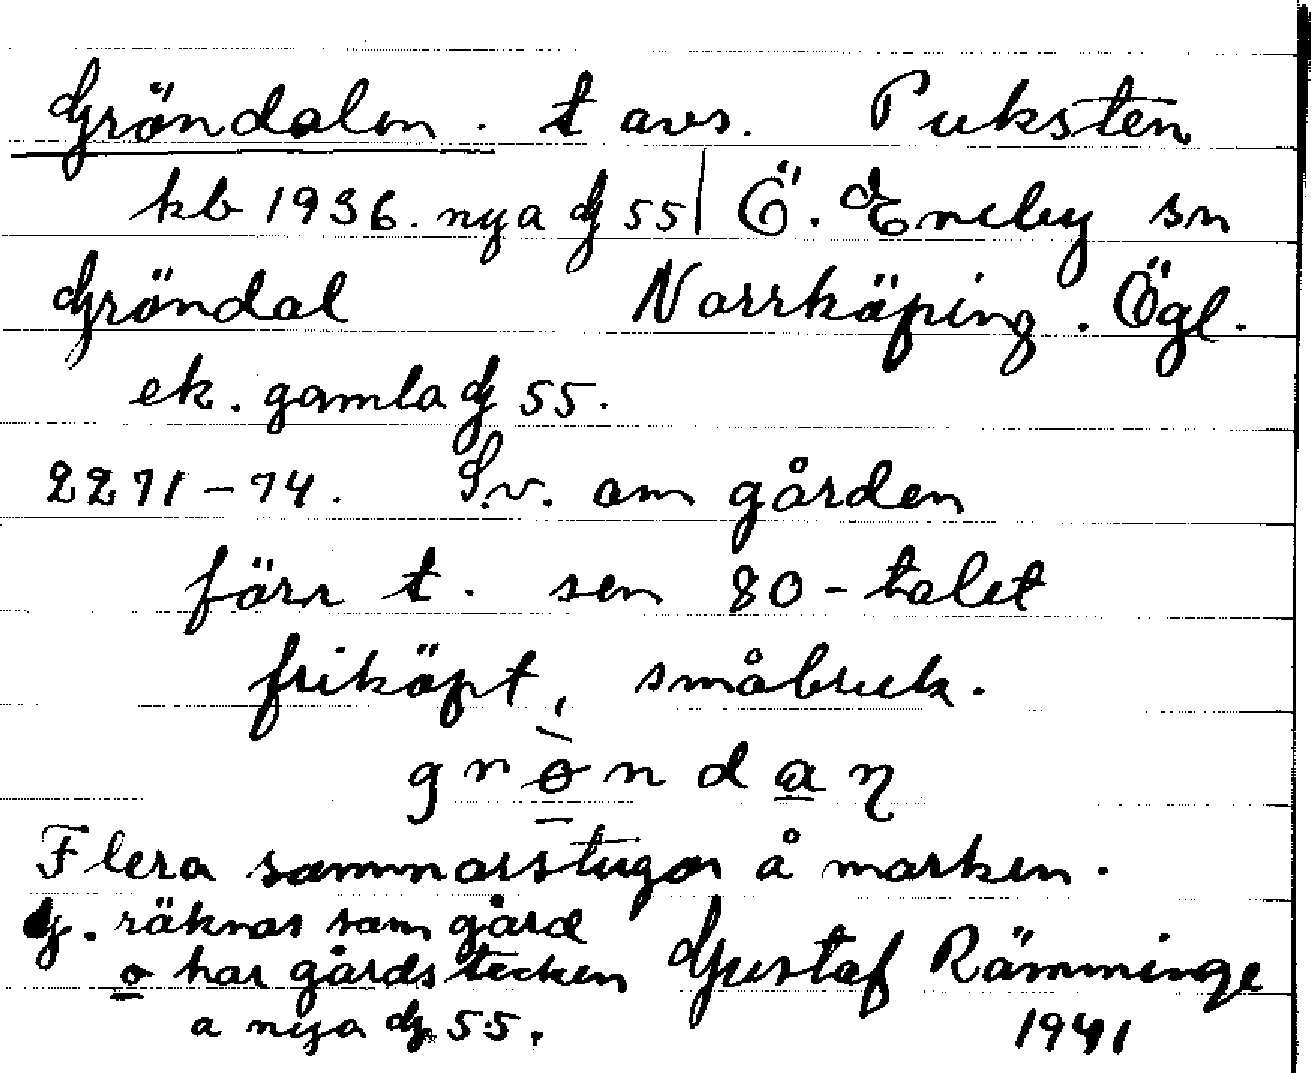 Gröndalen. t avs. Puksten
kb 1936. nya G 55 | Ö. Eneby sn
Gröndal Norrköping. Ögl.
ek. gamla G 55.
2271-74. S.v. om gården
förr t. sen 80-talet
friköpt, småbruk.
grøndaη
Flera sommarstugor å marken.
G. räknas som gård
o har gårdstecken Gustaf Rämminge
a nya G. 55. 1941